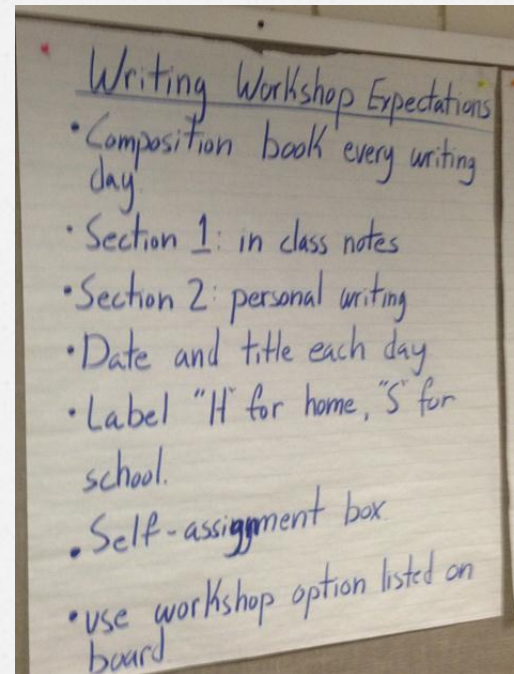 Writing Workshop Expectations
• Composition book every writing
day.
• Section 1: in class notes
• Section 2: personal writing
• Date and title each day
• Label "H" for home, "S" for
school.
• Self-assignment box
• use workshop option listed on
board